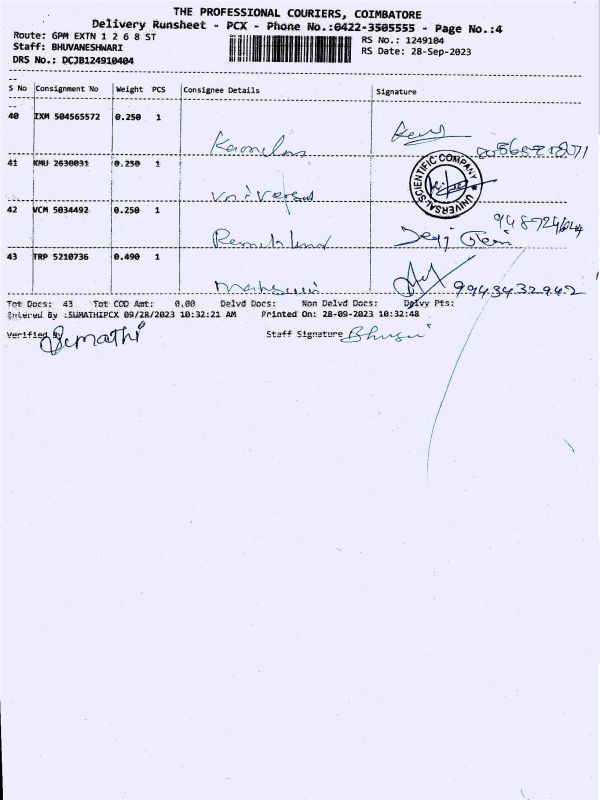 THE PROFESSIONAL COURIERS, COIMBATORE
Delivery Runsheet - PCX - Phone No.:0422-3505555 - Page No.:4
Route: GPM EXTN 1 2 6 8 ST
RS No.: 1249104
Staff: BHUVANESHWARI
RS Date: 28-Sep-2023
DRS No.: DCJB124910404
S No Consignment No Weight PCS Consignee Details Signature
40 IXM 504565572 0.250 1
41 KMU 2630031 0.250 1 Universal
UNIVERSAL SCIENTIFIC COMPANY
42 VCM 5034492 0.250 1
43 TRP 5210736 0.490 1
9943432942
Tot Docs: 43 Tot COD Amt: 0.00 Delvd Docs: Non Delvd Docs: Delvy Pts:
Entered By :SUMATHIPCX 09/28/2023 10:32:21 AM Printed On: 28-09-2023 10:32:48
Verified By Sumathi Staff Signature